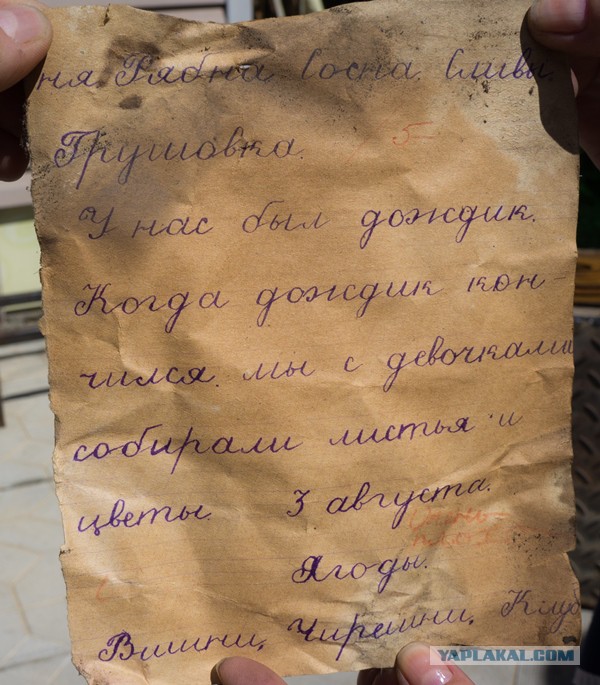 ня. Рябна. Сосна. Сливы.
Грушовка. 5-
У нас был дождик.
Когда дождик кон-
чился, мы с девочками
собирали листья и
цветы. 3 августа.
Ягоды.
Вишни, Чирешни, Клуб
YAPLAKAL.COM